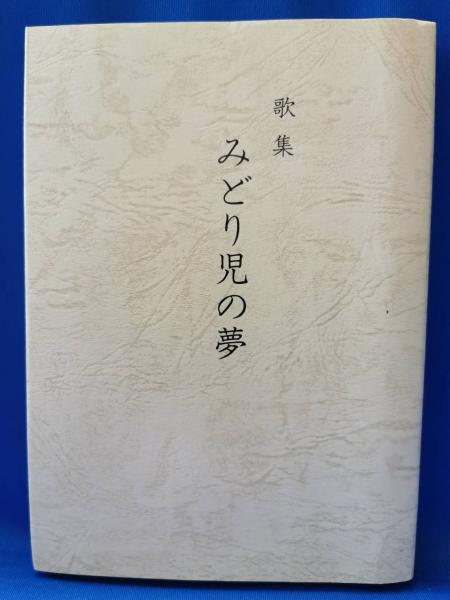 歌集
みどり児の夢